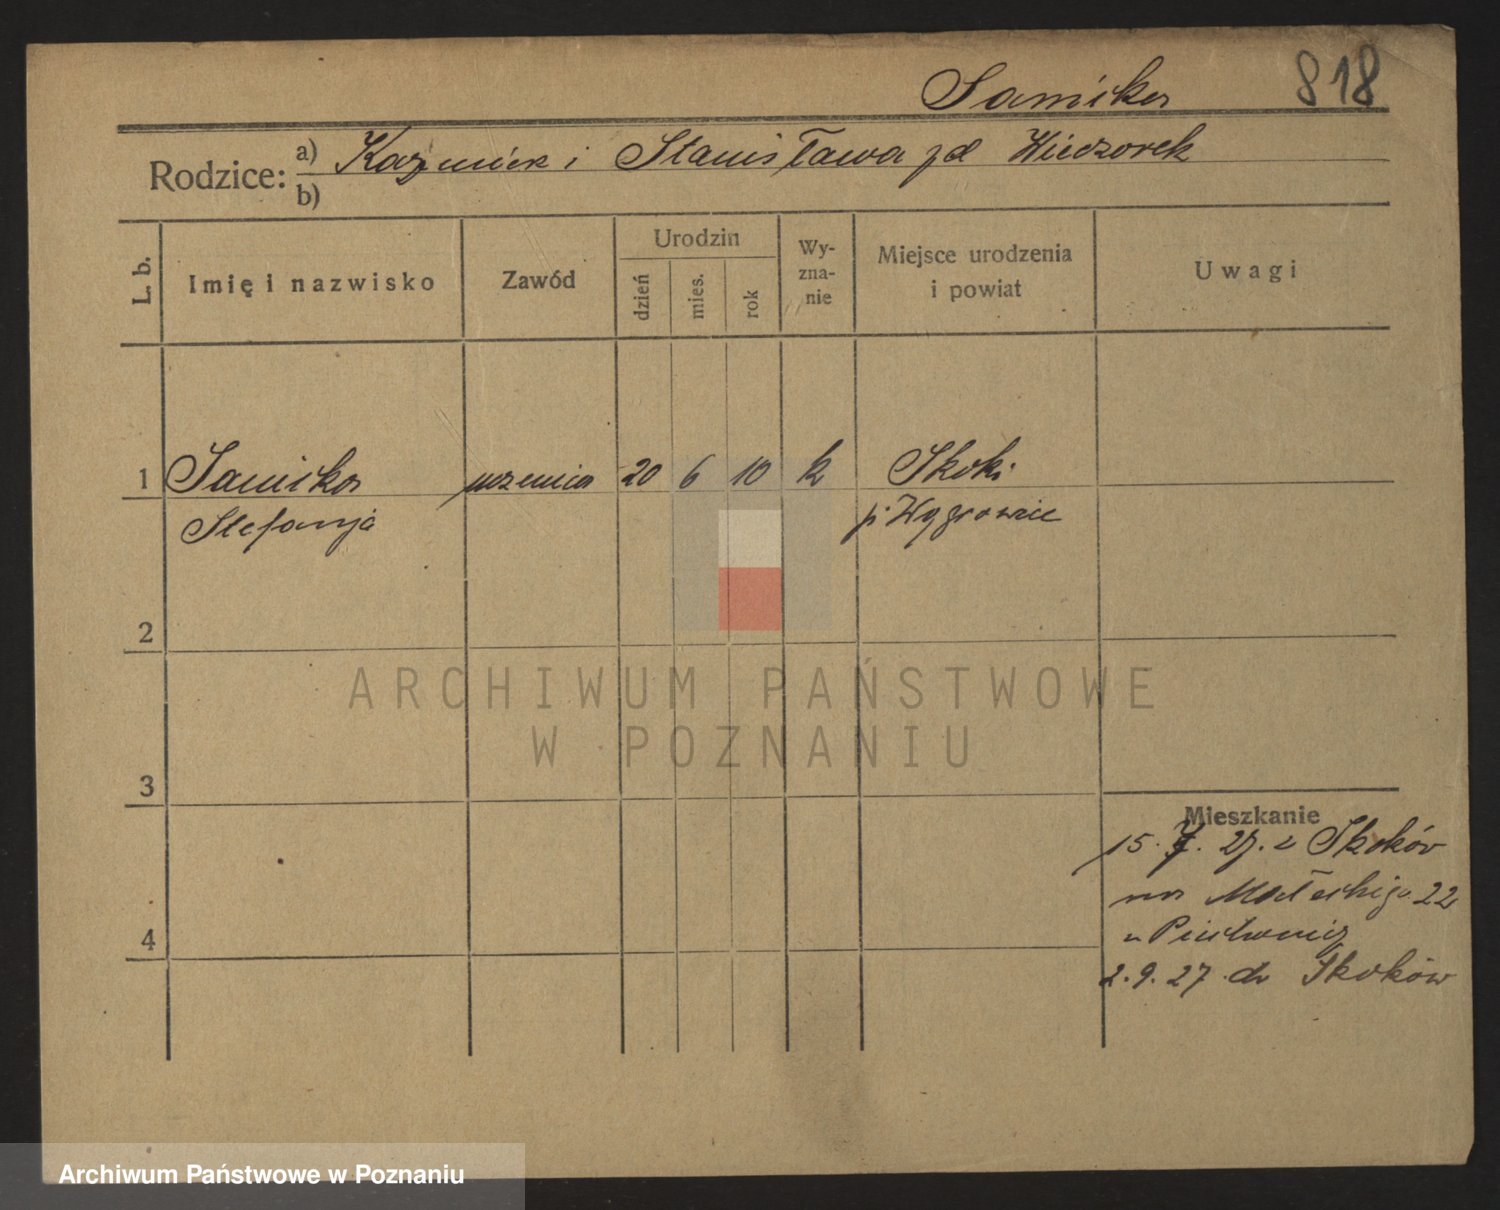 Samika
818
Rodzice: a) Kazmierz i Stanisława zd Wieczorek
b)
L. b.
Imię i nazwisko
Zawód
Urodzin
dzień
mies.
rok
Wy-
zna-
nie
Miejsce urodzenia
i powiat
Uwagi
1 Samika uczenica 20 6 10 k Skoki
Stefanja p. Wągrowiec
2
ARCHIWUM PAŃSTWOWE
W POZNANIU
3
Mieszkanie
15. 7. 27. z Skoków
na Małeckiego 22
u
4
2. 9. 27 do Skoków
Archiwum Państwowe w Poznaniu